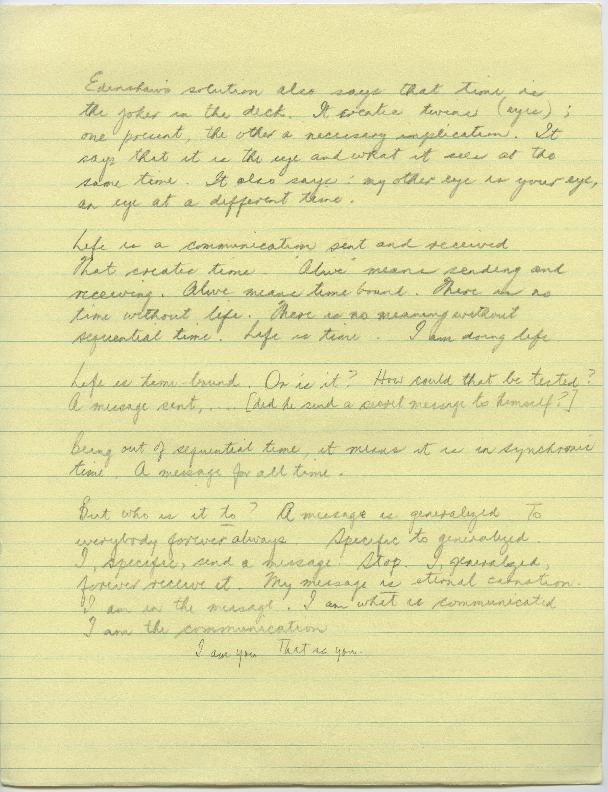 Edenshaw's solution also says that time is
the joker in the deck. It creates twins (eyes);
one present, the other a necessary implication. It
says that it is the eye and what it sees at the
same time. It also says: my other eye is your eye,
an eye at a different time.
Life is a communication sent and received
That creates time. "Alive" means sending and
receiving. Alive means time bound. There is no
time without life. There is no meaning without
sequential time. Life is time. I am doing life
Life is time-bound. Or is it? How could that be tested?
A message sent, ... [did he send a secret message to himself?]
Being out of sequential time, it means it is in synchronic
time. A message for all time.
But who is it to? A message is generalized to
everybody forever always. Specific to generalized.
I, specific, send a message. Stop. I, generalized,
forever receive it. My message is eternal
I am in the message. I am what is communicated
I am the communication
I am you That is you.